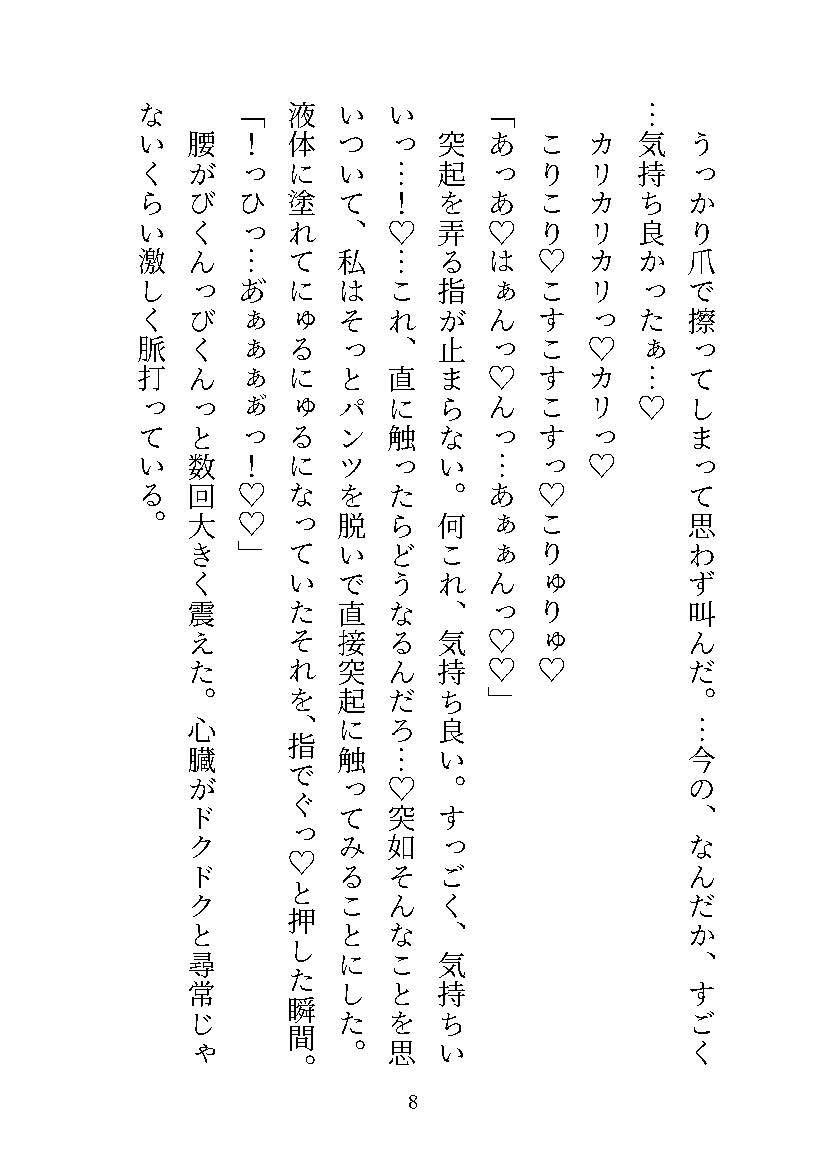 うっかり爪で擦ってしまって思わず叫んだ。…今の、なんだか、すごく
…気持ち良かったぁ…♡
カリカリカリっ♡カリっ♡
こりこり♡こすこすこすっ♡こりゅりゅ♡
「あっあ♡はぁんっ♡んっ…あぁぁんっ♡♡」
突起を弄る指が止まらない。何これ、気持ち良い。すっごく、気持ちい
いっ…！♡…これ、直に触ったらどうなるんだろ…♡突如そんなことを思
いついて、私はそっとパンツを脱いで直接突起に触ってみることにした。
液体に塗れてにゅるにゅるになっていたそれを、指でぐっ♡と押した瞬間。
「！っひっ…あ゙ぁぁぁあ゙っ！♡♡」
腰がびくんっびくんっと数回大きく震えた。心臓がドクドクと尋常じゃ
ないくらい激しく脈打っている。
8